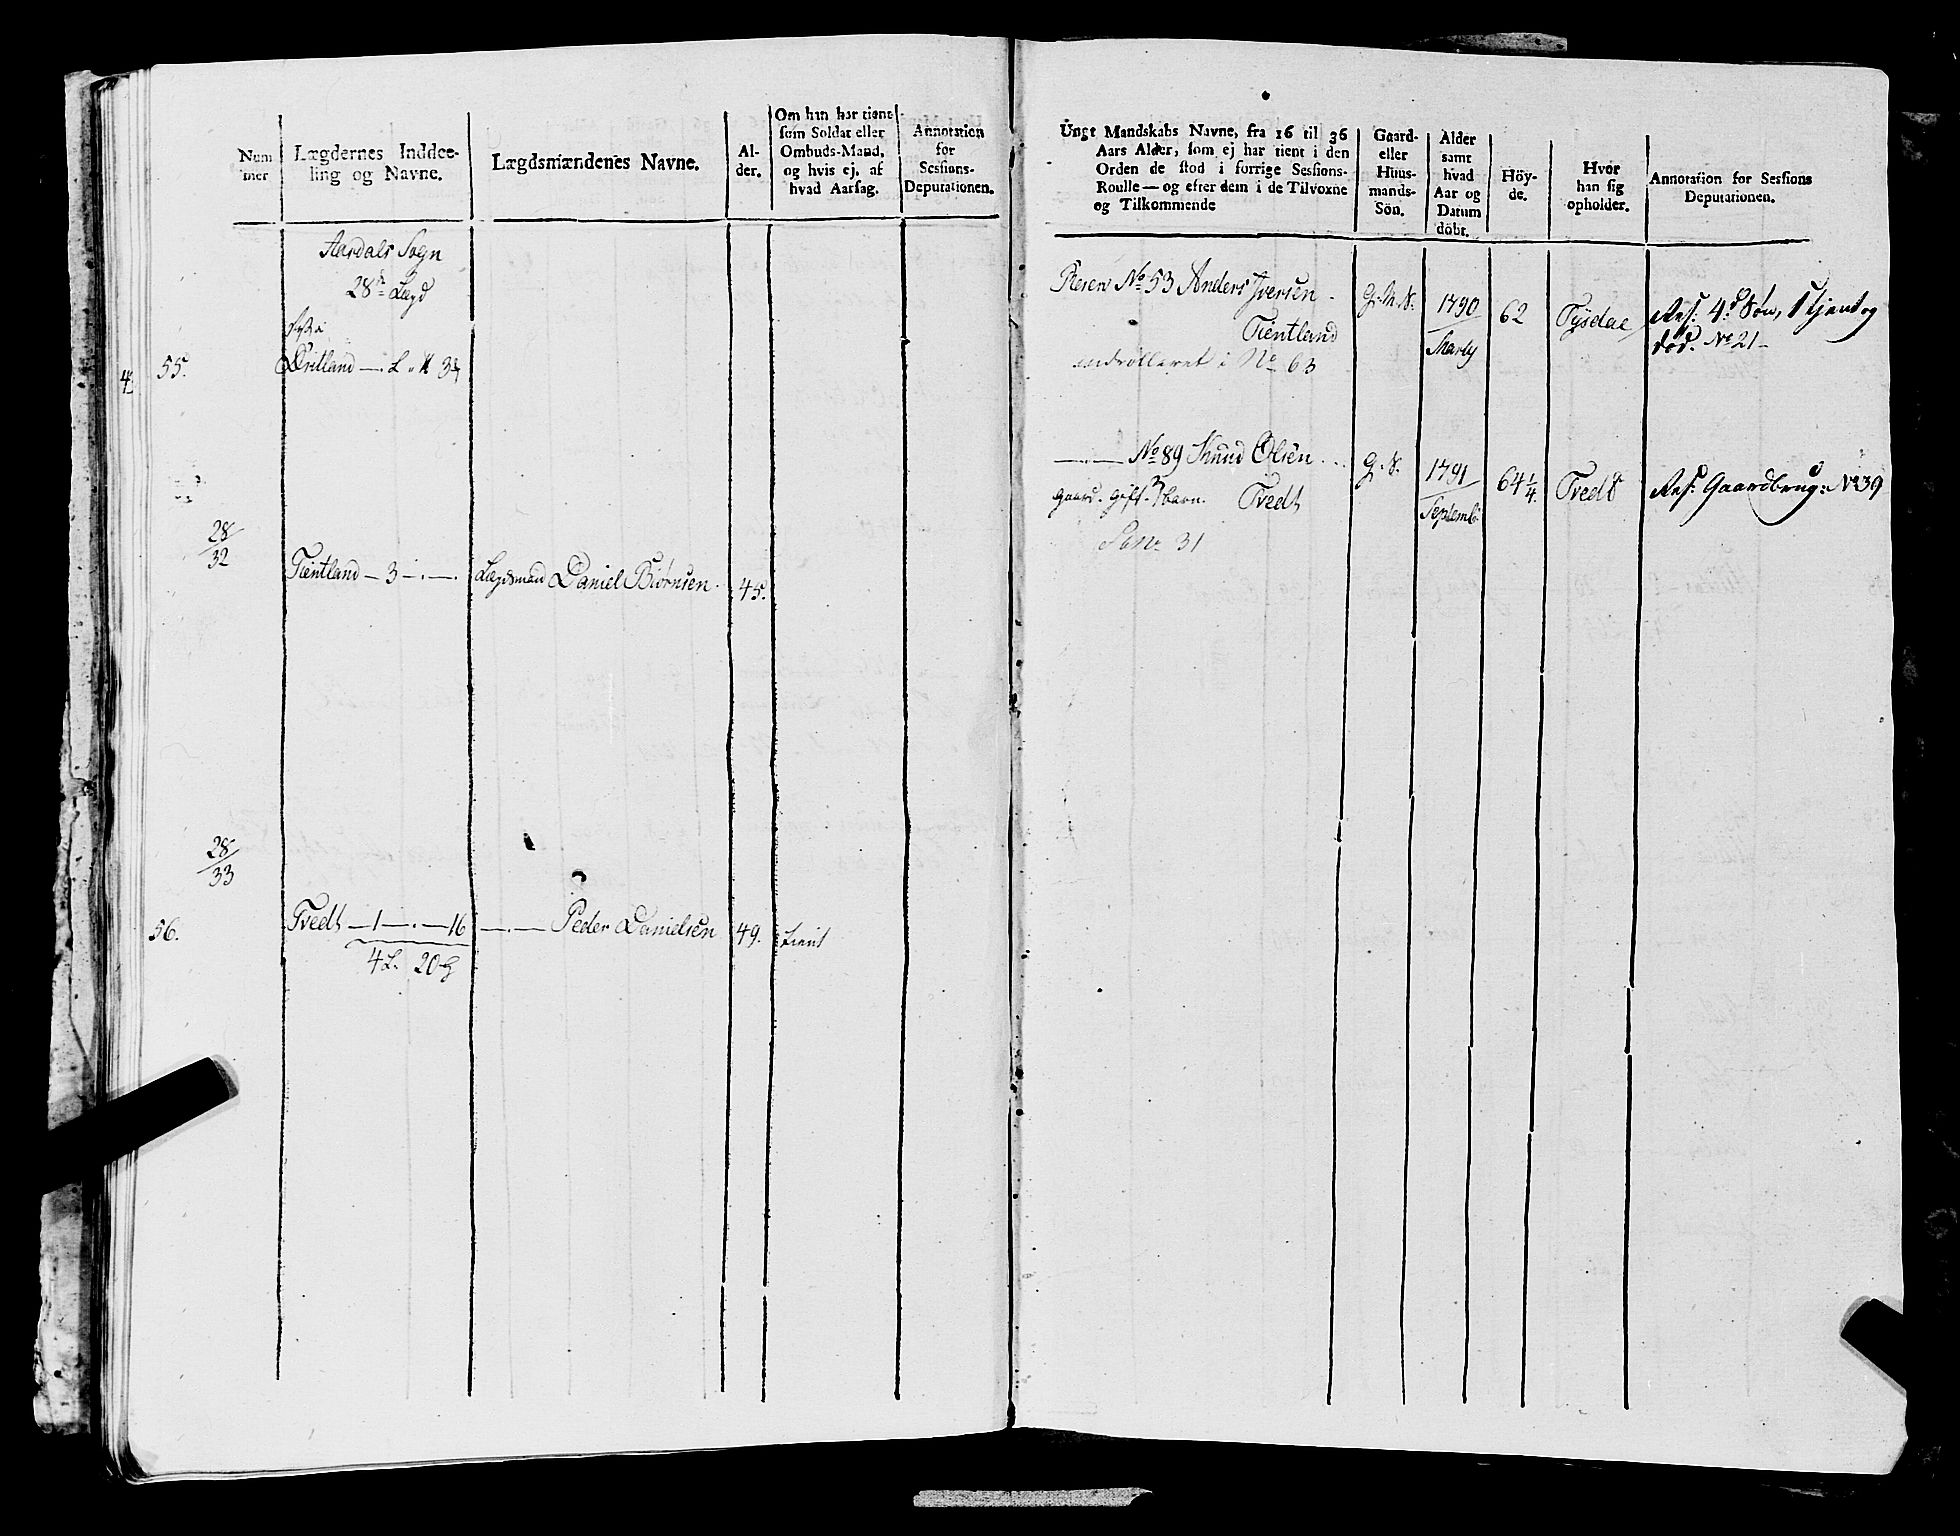 Num
mer
Lægdernes Inddee-
ling og Navne.
Lægdsmændenes Navne.
Al-
der.
Om han har tient
som Soldat eller
Ombuds-Mand,
og hvis ej, af
hvad Aarsag.
Annotation
for
Sessions-
Deputationen.
Aardals Sogn
28de Lægd
55.
Østre
28/32
Tientland — 3 —.—
Lægdsmand Daniel Biørnsen
45.
28/33
56.
Tvedt — 1 —.— 16
—.— Peder Danielsen
49.
tient
4 L. 20
Ungt Mandskabs Navne, fra 16 til 36
Aars Alder, som ej har tient i den
Orden de stod i forrige Sessions-
Roulle — og efter dem i de Tilvoxne
og Tilkommende
Gaard-
eller
Huus-
mands-
Sön.
Alder
samt
hvad
Aar og
Datum
döbt.
Höy-
de.
Hvor
han sig
opholder.
Annotation for Sessions
Deputationen.
No 53 Anders Iversen
Tientland
G. M. S.
1790
Marty
62
Tysdal
Res: 4de Søn, 1 tient og
død. No 21
i No 63
—.— No 89 Knud Olsen
gaard. gift. Barn. Tvedt
G. S.
1791
Septemb
64 1/4
Tvedt
Res: Gaardbrug: No 39
31